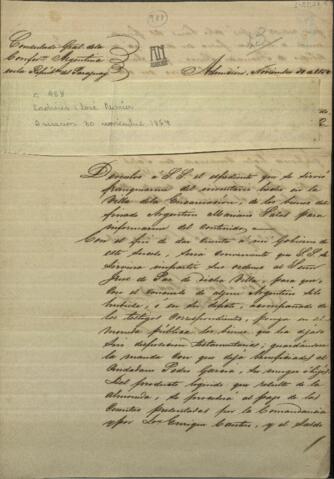 Consulado Gral. de la
Confon. Argentina
en la Repúba. del Paraguay
Asunción, Noviembre 30 de 18
Asuncion 30 noviembre 1854
Devuelvo á S.E. el espediente que se sirvió
franquearme del inventario hecho en la
Villa de la Encarnacion, de los bienes del
finado Argentino Mariano para
informarme del contenido.
Con el fin de dar cuenta á mi Gobierno de
este suceso, sería conveniente que S.E. se
sirviera impartir sus ordenes al Señor
Juez de Paz de dicha Villa, para que,
con el consenso de algun Argentino
ó en su defecto, acompañado de
los testigos correspondientes, ponga en al
moneda pública los bienes que ha dejado
sin disposicion testamentaria; guardándose
la manda con que dejó beneficiado al
Pedro Garcia, su amigo
Del producto líquido que resulte de la
Almoneda, se procederá al pago de las
cuentas presentadas por la Comandancia
y por Enrique y el saldo